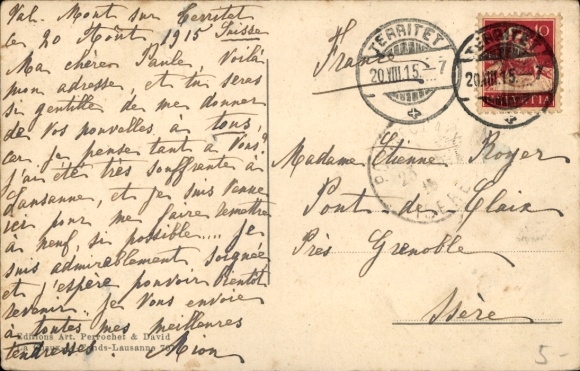 Val-Mont sur Territet
le 20 Août 1915 Suisse
Ma chère Paule, Voilà
mon adresse, et tu seras
si gentille de me donner
de vos nouvelles à tous,
car je pense tant à Vous!
J'ai été très souffrante à
Lausanne, et je suis venue
ici pour me faire remettre
à neuf, si possible.... je
suis admirablement soignée
et j'espère pouvoir bientôt
revenir. je vous envoie
à toutes mes meilleures
tendresses. Mion
Editions Art. Perrochet & David
La Chaux-de-Fonds-Lausanne
France
TERRITET
20.VIII.15. - 7
TERRITET
20.VIII.15. - 7
10
HELVETIA
Madame Etienne Royer
Pont-de-Claix
Près Grenoble
Isère
5-